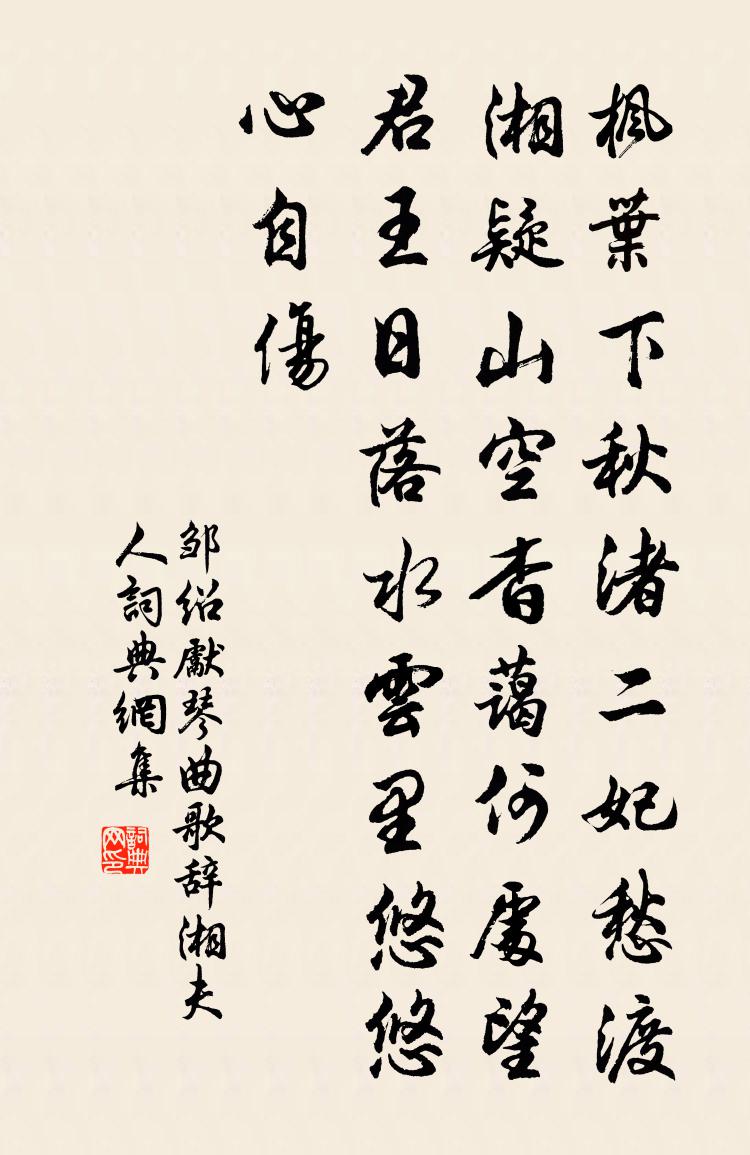 楓葉下秋渚二妃愁渡
湘疑山空杳藹何處望
君王日落水雲里悠悠
心自傷
邹绍獻琴曲歌辞湘夫
人詞典網集
詞典网印